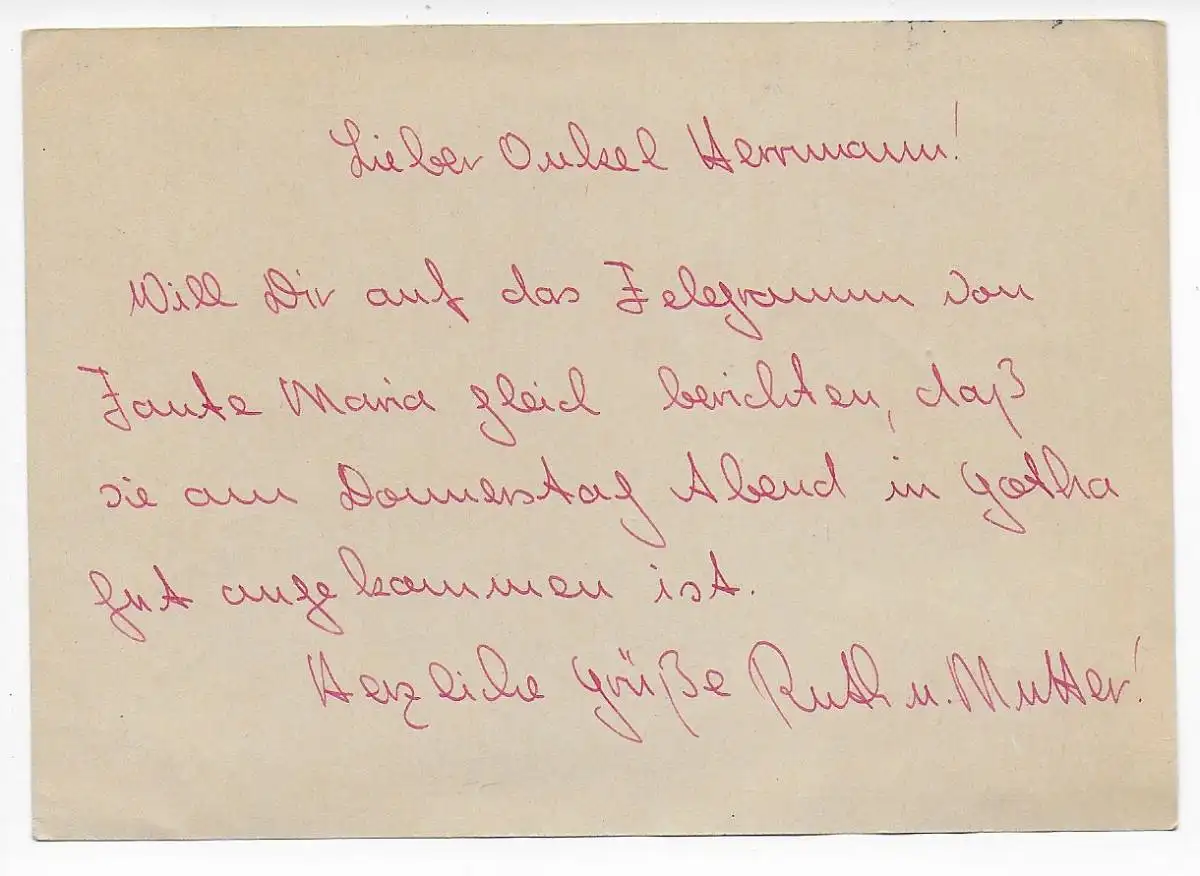 Lieber Onkel Herrmann!
Will Dir auf das Telegramm von
Tante Maria gleich berichten, daß
sie am Donnerstag Abend in Gotha
gut angekommen ist.
Herzliche Grüße Ruth u. Mutter!